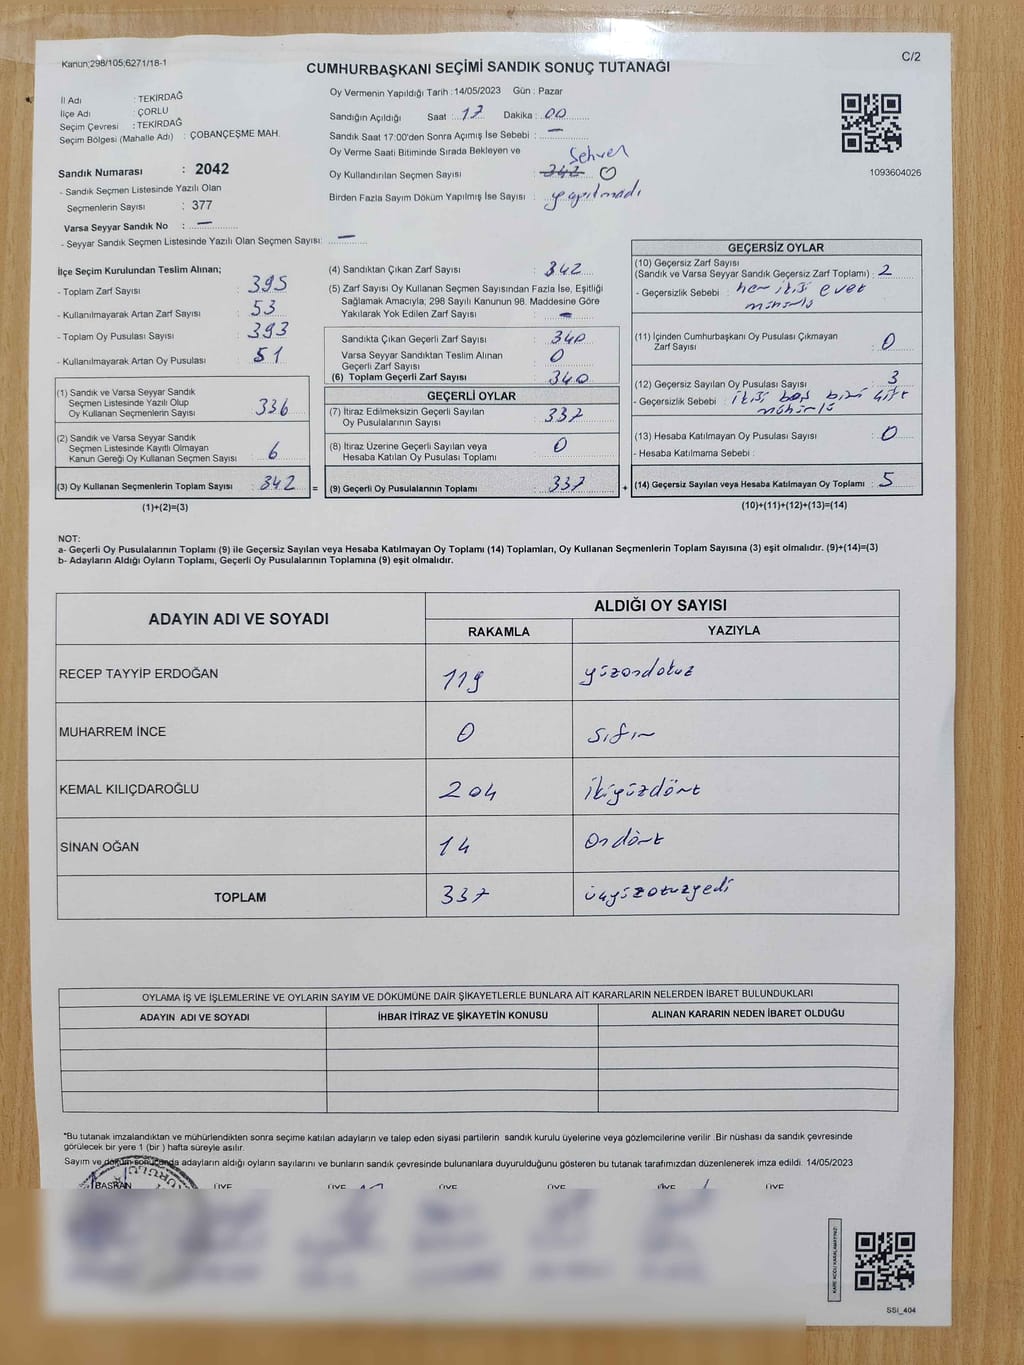 Kanun;298/105;6271/18-1
C/2
CUMHURBAŞKANI SEÇİMİ SANDIK SONUÇ TUTANAĞI
İl Adı : TEKİRDAĞ
İlçe Adı : ÇORLU
Seçim Çevresi : TEKİRDAĞ
Seçim Bölgesi (Mahalle Adı) : ÇOBANÇEŞME MAH.
Sandık Numarası : 2042
- Sandık Seçmen Listesinde Yazılı Olan
Seçmenlerin Sayısı : 377
Varsa Seyyar Sandık No : —
- Seyyar Sandık Seçmen Listesinde Yazılı Olan Seçmen Sayısı: —
Oy Vermenin Yapıldığı Tarih : 14/05/2023 Gün : Pazar
Sandığın Açıldığı Saat : 17 Dakika : 00
Sandık Saat 17:00'den Sonra Açımış İse Sebebi : —
Oy Verme Saati Bitiminde Sırada Bekleyen ve
Sehven
Oy Kullandırılan Seçmen Sayısı : 342 0
Birden Fazla Sayım Döküm Yapılmış İse Sayısı : yapılmadı
1093604026
İlçe Seçim Kurulundan Teslim Alınan;
- Toplam Zarf Sayısı : 395
- Kullanılmayarak Artan Zarf Sayısı : 53
- Toplam Oy Pusulası Sayısı : 393
- Kullanılmayarak Artan Oy Pusulası : 51
(1) Sandık ve Varsa Seyyar Sandık
Seçmen Listesinde Yazılı Olup
Oy Kullanan Seçmenlerin Sayısı : 336
(2) Sandık ve Varsa Seyyar Sandık
Seçmen Listesinde Kayıtlı Olmayan
Kanun Gereği Oy Kullanan Seçmen Sayısı : 6
(3) Oy Kullanan Seçmenlerin Toplam Sayısı : 342
(1)+(2)=(3)
=
(4) Sandıktan Çıkan Zarf Sayısı : 342
(5) Zarf Sayısı Oy Kullanan Seçmen Sayısından Fazla İse, Eşitliği
Sağlamak Amacıyla, 298 Sayılı Kanunun 98. Maddesine Göre
Yakılarak Yok Edilen Zarf Sayısı : —
Sandıkta Çıkan Geçerli Zarf Sayısı : 340
Varsa Seyyar Sandıktan Teslim Alınan
Geçerli Zarf Sayısı : 0
(6) Toplam Geçerli Zarf Sayısı : 340
GEÇERLİ OYLAR
(7) İtiraz Edilmeksizin Geçerli Sayılan
Oy Pusulalarının Sayısı : 337
(8) İtiraz Üzerine Geçerli Sayılan veya
Hesaba Katılan Oy Pusulası Toplamı : 0
(9) Geçerli Oy Pusulalarının Toplamı : 337
+
GEÇERSİZ OYLAR
(10) Geçersiz Zarf Sayısı
(Sandık ve Varsa Seyyar Sandık Geçersiz Zarf Toplamı) : 2
- Geçersizlik Sebebi : her ikisi evet
mühürlü
(11) İçinden Cumhurbaşkanı Oy Pusulası Çıkmayan
Zarf Sayısı : 0
(12) Geçersiz Sayılan Oy Pusulası Sayısı : 3
- Geçersizlik Sebebi : ikisi boş biri çift
mühürlü
(13) Hesaba Katılmayan Oy Pusulası Sayısı : 0
- Hesaba Katılmama Sebebi :
(14) Geçersiz Sayılan veya Hesaba Katılmayan Oy Toplamı : 5
(10)+(11)+(12)+(13)=(14)
NOT:
a- Geçerli Oy Pusulalarının Toplamı (9) ile Geçersiz Sayılan veya Hesaba Katılmayan Oy Toplamı (14) Toplamları, Oy Kullanan Seçmenlerin Toplam Sayısına (3) eşit olmalıdır. (9)+(14)=(3)
b- Adayların Aldığı Oyların Toplamı, Geçerli Oy Pusulalarının Toplamına (9) eşit olmalıdır.
ADAYIN ADI VE SOYADI
ALDIĞI OY SAYISI
RAKAMLA
YAZIYLA
RECEP TAYYİP ERDOĞAN 119 yüzondokuz
MUHARREM İNCE 0 sıfır
KEMAL KILIÇDAROĞLU 204 ikiyüzdört
SİNAN OĞAN 14 Ondört
TOPLAM 337 üçyüzotuzyedi
OYLAMA İŞ VE İŞLEMLERİNE VE OYLARIN SAYIM VE DÖKÜMÜNE DAİR ŞİKAYETLERLE BUNLARA AİT KARARLARIN NELERDEN İBARET BULUNDUKLARI
ADAYIN ADI VE SOYADI
İHBAR İTİRAZ VE ŞİKAYETİN KONUSU
ALINAN KARARIN NEDEN İBARET OLDUĞU
"Bu tutanak imzalandıktan ve mühürlendikten sonra seçime katılan adayların ve talep eden siyasi partilerin sandık kurulu üyelerine veya gözlemcilerine verilir .Bir nüshası da sandık çevresinde
görülecek bir yere 1 (bir ) hafta süreyle asılır.
Sayım ve döküm sonucunda adayların aldığı oyların sayılarını ve bunların sandık çevresinde bulunanlara duyurulduğunu gösteren bu tutanak tarafımızdan düzenlenerek imza edildi. 14/05/2023
BAŞKAN ÜYE ÜYE ÜYE ÜYE ÜYE ÜYE
KARE KODU KARALAMAYINIZ!
SSI_404